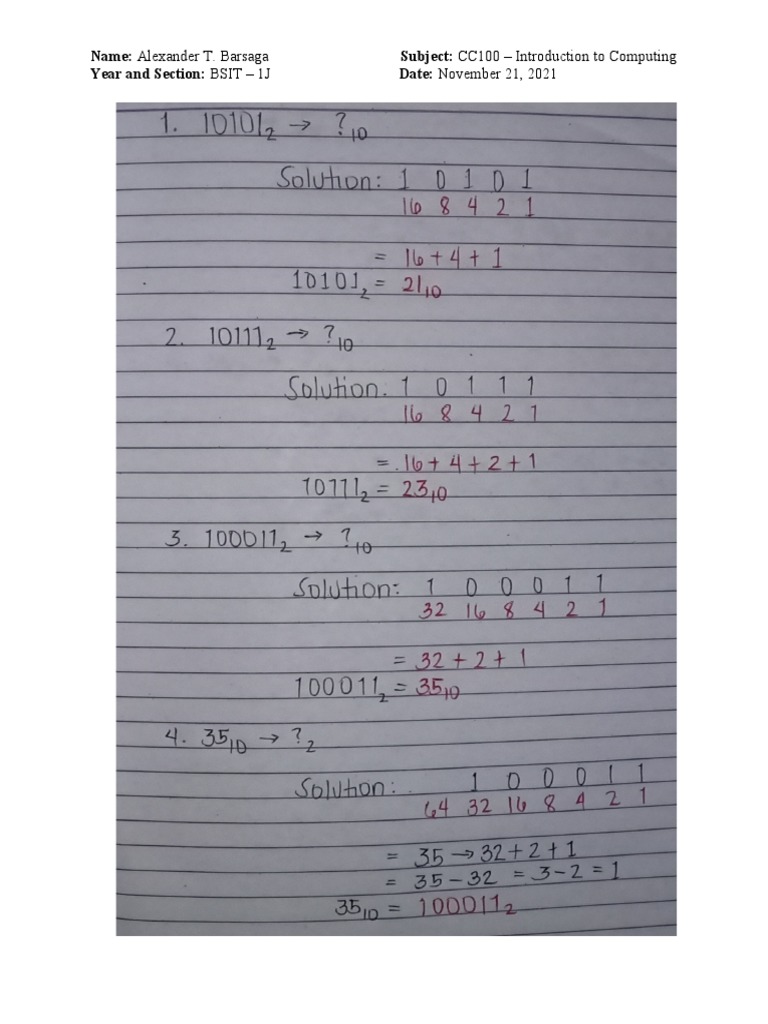 Name: Alexander T. Barsaga Subject: CC100 – Introduction to Computing
Year and Section: BSIT – 1J Date: November 21, 2021
1. 10101₂ → ?₁₀
Solution: 1 0 1 0 1
16 8 4 2 1
= 16 + 4 + 1
10101₂ = 21₁₀
2. 10111₂ → ?₁₀
Solution. 1 0 1 1 1
16 8 4 2 1
= 16 + 4 + 2 + 1
10111₂ = 23₁₀
3. 100011₂ → ?₁₀
Solution: 1 0 0 0 1 1
32 16 8 4 2 1
= 32 + 2 + 1
100011₂ = 35₁₀
4. 35₁₀ → ?₂
Solution: 1 0 0 0 1 1
64 32 16 8 4 2 1
= 35 → 32 + 2 + 1
= 35 – 32 = 3 – 2 = 1
35₁₀ = 100011₂